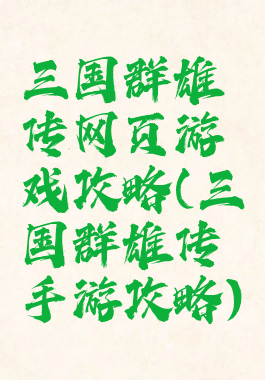 三国群雄
传网页游
戏攻略(三
国群雄传
手游攻略)